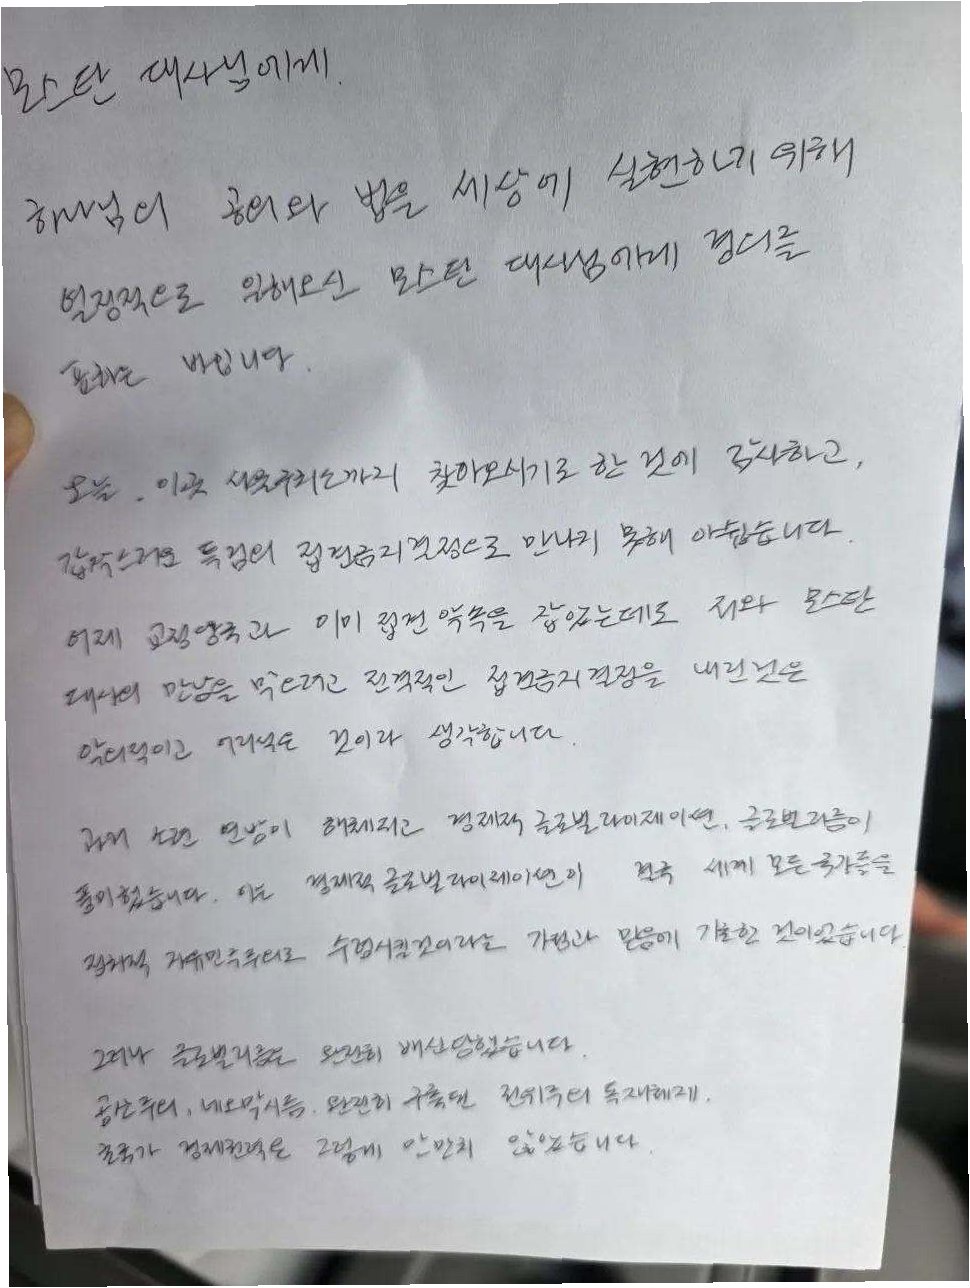 모스탄 대사님에게.
하나님의 공의와 법을 세상에 실현하기 위해
열정적으로 일해오신 모스탄 대사님에게 경의를
표하는 바입니다.
오늘, 이곳 서울구치소까지 찾아오시기로 한 것에 감사하고,
갑작스러운 특검의 접견금지결정으로 만나지 못해 아쉽습니다.
어제 교정당국과 이미 접견 약속을 잡았는데도 저와 모스탄
대사의 만남을 막으려고 전격적인 접견금지결정을 내린 것은
악의적이고 어리석은 것이라 생각합니다.
과거 소련 연방이 해체되고 경제적 글로벌라이제이션, 글로벌리즘이
풍미했습니다. 이는 경제적 글로벌라이제이션이 결국 세계 모든 국가들을
정치적 자유민주주의로 수렴시킬것이라는 가정과 믿음에 기초한 것이었습니다
그러나 글로벌리즘은 완전히 배신당했습니다.
공산주의, 네오막시즘, 완전히 구축된 전위주의 독재체제,
초국가 경제권력은 그렇게 만만치 않았습니다.